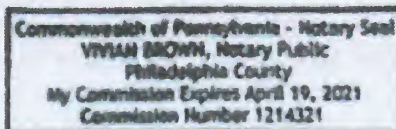 Commonwealth of Pennsylvania - Notary Seal
VIVIAN BROWN, Notary Public
Philadelphia County
My Commission Expires April 19, 2021
Commission Number 1214321